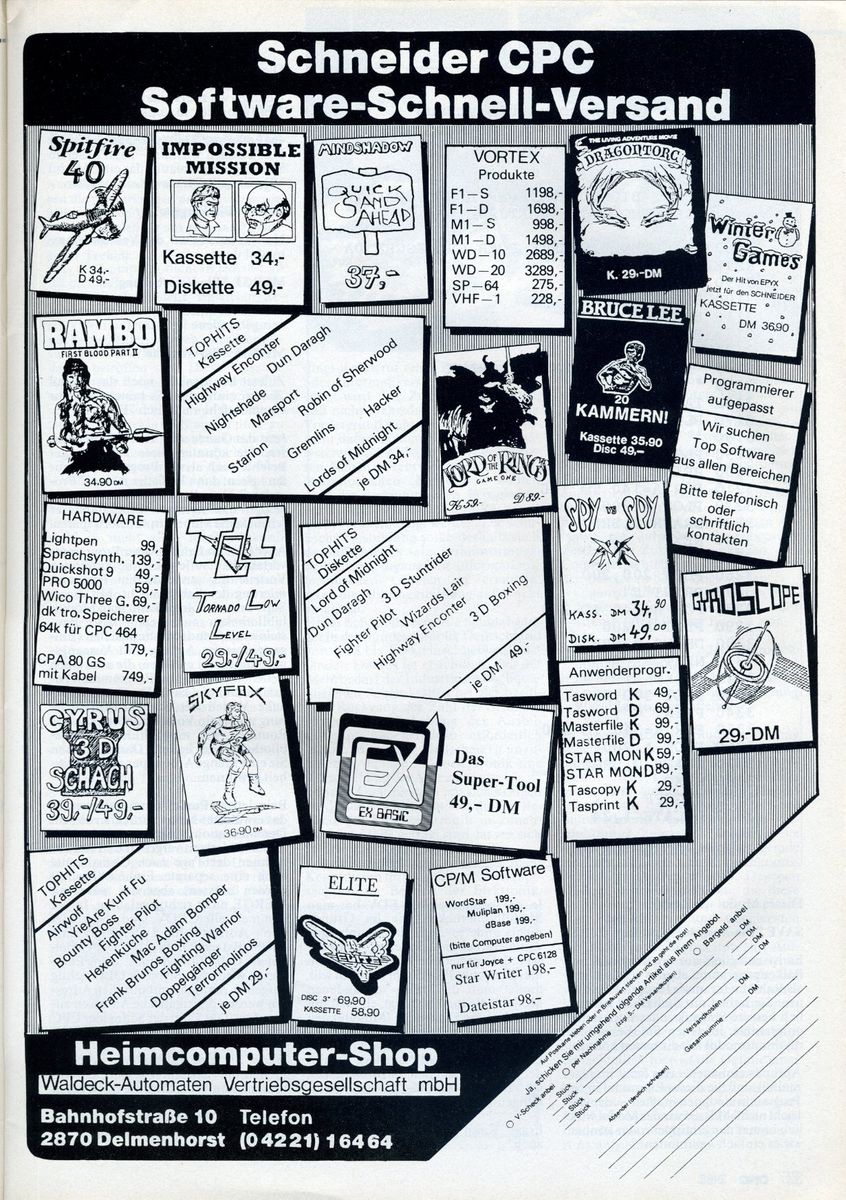 Schneider CPC
Software-Schnell-Versand
Spitfire
40
K 34,-
D 49,-
IMPOSSIBLE
MISSION
Kassette 34,-
Diskette 49,-
MINDSHADOW
QUICK
SAND
AHEAD
37,-
VORTEX
Produkte
F1-S 1198,-
F1-D 1698,-
M1-S 998,-
M1-D 1498,-
WD-10 2689,-
WD-20 3289,-
SP-64 275,-
VHF-1 228,-
THE LIVING ADVENTURE MOVIE
DRAGONTORC
K. 29,-DM
Winter
Games
Der Hit von EPYX
jetzt für den SCHNEIDER
KASSETTE
DM 36,90
RAMBO
FIRST BLOOD PART II
34.90 DM
TOPHITS
Kassette
Highway Enconter
Dun Daragh
Nightshade
Marsport
Robin of Sherwood
Starion
Gremlins
Hacker
Lords of Midnight
je DM 34,-
LORD OF THE RINGS
GAME ONE
K 59,- D 89,-
BRUCE LEE
20
KAMMERN!
Kassette 35,90
Disc 49,-
Programmierer
aufgepasst
Wir suchen
Top Software
aus allen Bereichen
Bitte telefonisch
oder
schriftlich
kontakten
HARDWARE
Lightpen 99,-
Sprachsynth. 139,-
Quickshot 9 49,-
PRO 5000 59,-
Wico Three G. 69,-
dk'tro. Speicherer
64k für CPC 464
179,-
CPA 80 GS
mit Kabel 749,-
TLL
TORNADO LOW
LEVEL
29,-/49,-
TOPHITS
Diskette
Lord of Midnight
Dun Daragh
3 D Stuntrider
Fighter Pilot
Wizards Lair
Highway Enconter
3 D Boxing
je DM 49,-
SPY vs SPY
KASS. DM 34,90
DISK. DM 49,00
GYROSCOPE
29,-DM
CYRUS
3 D
SCHACH
39,-/49,-
SKYFOX
36.90 DM
EX
EX BASIC
Das
Super-Tool
49,- DM
Anwenderprogr.
Tasword K 49,-
Tasword D 69,-
Masterfile K 99,-
Masterfile D 99,-
STAR MON K 59,-
STAR MON D 89,-
Tascopy K 29,-
Tasprint K 29,-
TOPHITS
Kassette
Airwolf
YieAre Kunf Fu
Bounty Boss
Fighter Pilot
Hexenküche
Mac Adam Bomper
Frank Brunos Boxing
Fighting Warrior
Doppelgänger
Terrormolinos
je DM 29,-
ELITE
ELITE
DISC 3" 69.90
KASSETTE 58.90
CP/M Software
WordStar 199,-
Muliplan 199,-
dBase 199,-
(bitte Computer angeben)
nur für Joyce + CPC 6128
Star Writer 198,-
Dateistar 98,-
Auf Postkarte kleben oder in Briefkuvert stecken und ab geht die Post!
Ja, schicken Sie mir umgehend folgende Artikel aus Ihrem Angebot
V-Scheck anbei
per Nachnahme (zzgl. 5,- DM Versandkosten)
Bargeld anbei
Stück DM
Stück DM
Stück DM
Stück DM
Versandkosten DM
Gesamtsumme DM
Absender (deutlich schreiben)
Heimcomputer-Shop
Waldeck-Automaten Vertriebsgesellschaft mbH
Bahnhofstraße 10 Telefon
2870 Delmenhorst (04221) 16464